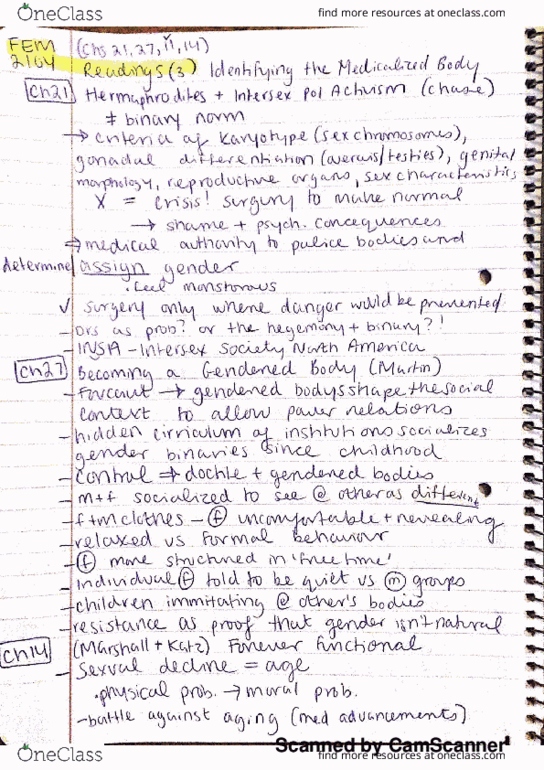 OneClass
find more resources at oneclass.com
FEM 2104
(Chs 21, 27, 11, 14)
Readings (3) Identifying the Medicalized Body
Ch21
Hermaphrodites + Intersex Pol Activism (chase)
≠ binary norm
→ criteria of Karyotype (sex chromosomes),
gonadal differentiation (overies/testies), genital
morphology, reproductive organs, sex characteristics
X = crisis! surgery to make normal
→ shame + psych. concequences
⇒ medical authority to police bodies and
determine/assign gender
· feel monstorous
✓ surgery only where danger would be prevented
- Drs as prob? or the hegemony + binary?!
- INSA - Intersex Society North America
Ch27
Becoming a Gendered Body (Martin)
- Foucaut → gendered bodys shape the social
context to allow power relations
- hidden cirriculum of institutions socializes
gender binaries since childhood
- control ⇒ docile + gendered bodies
- m+f socialized to see @ other as different
- f+m clothes - (f) uncomfortable + revealing
- relaxed vs formal behaviour
- (f) more structured in 'free time'
- individual (f) told to be quiet vs (m) groups
- children immitating @ other's bodies
- resistance as proof that gender isn't natural
Ch14
(Marshall + Katz) Forever Functional
- Sexual decline = age
· physical prob. → moral prob.
- battle against aging (med advancements)
Scanned by CamScanner
OneClass
find more resources at oneclass.com